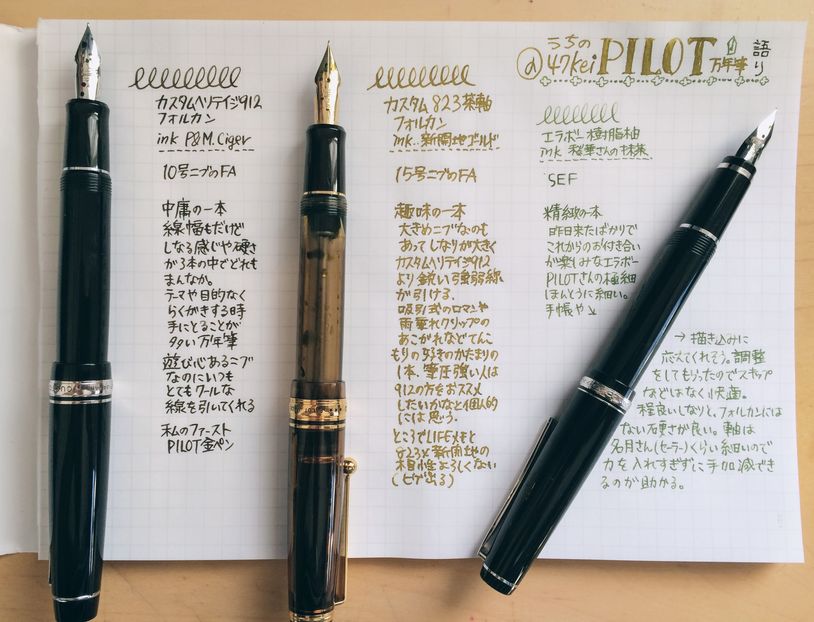 うちの
@47kei PILOT 万年筆 語り
カスタムヘリテイジ912
フォルカン
ink P&M. Ciger
10号ニブのFA
中庸の一本
線幅もだけど
しなる感じや硬さ
が3本の中でどれも
まんなか。
テーマや目的なく
らくがきする時
手にとることが
多い万年筆
遊び心あるニブ
なのにいつも
とてもクールな
線を引いてくれる
私のファースト
PILOT金ペン
カスタム823茶軸
フォルカン
ink..新開地ゴールド
15号ニブのFA
趣味の一本
大きめニブなのも
あってしなりが大きく
カスタムヘリテイジ912
より鋭い強弱線
が引ける。
吸引式のロマンや
雨垂れクリップの
あこがれなどてんこ
もりの好きのかたまりの
1本、筆圧強い人は
912の方をおススメ
したいかなと個人的
には思う。
ところでLIFEメモと
823×新開地の
相性よろしくない
(ヒゲ出る)
エラボー樹脂軸
ink 秘華さんの抹茶
SEF
精緻の一本
昨日来たばかりで
これからのお付き合い
が楽しみなエラボー
PILOTさんの極細
ほんとうに細い。
手帳や↘
→描き込みに
応えてくれそう。調整
をしてもらったのでスキップ
などはなく快適。
程良いしなりと、フォルカンには
ない硬さが良い。軸は
名月さん(セーラー)くらい細いので
力を入れすぎずに手加減でき
るのが助かる。